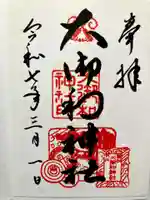 奉拝
大御和神社
令和七年三月一日